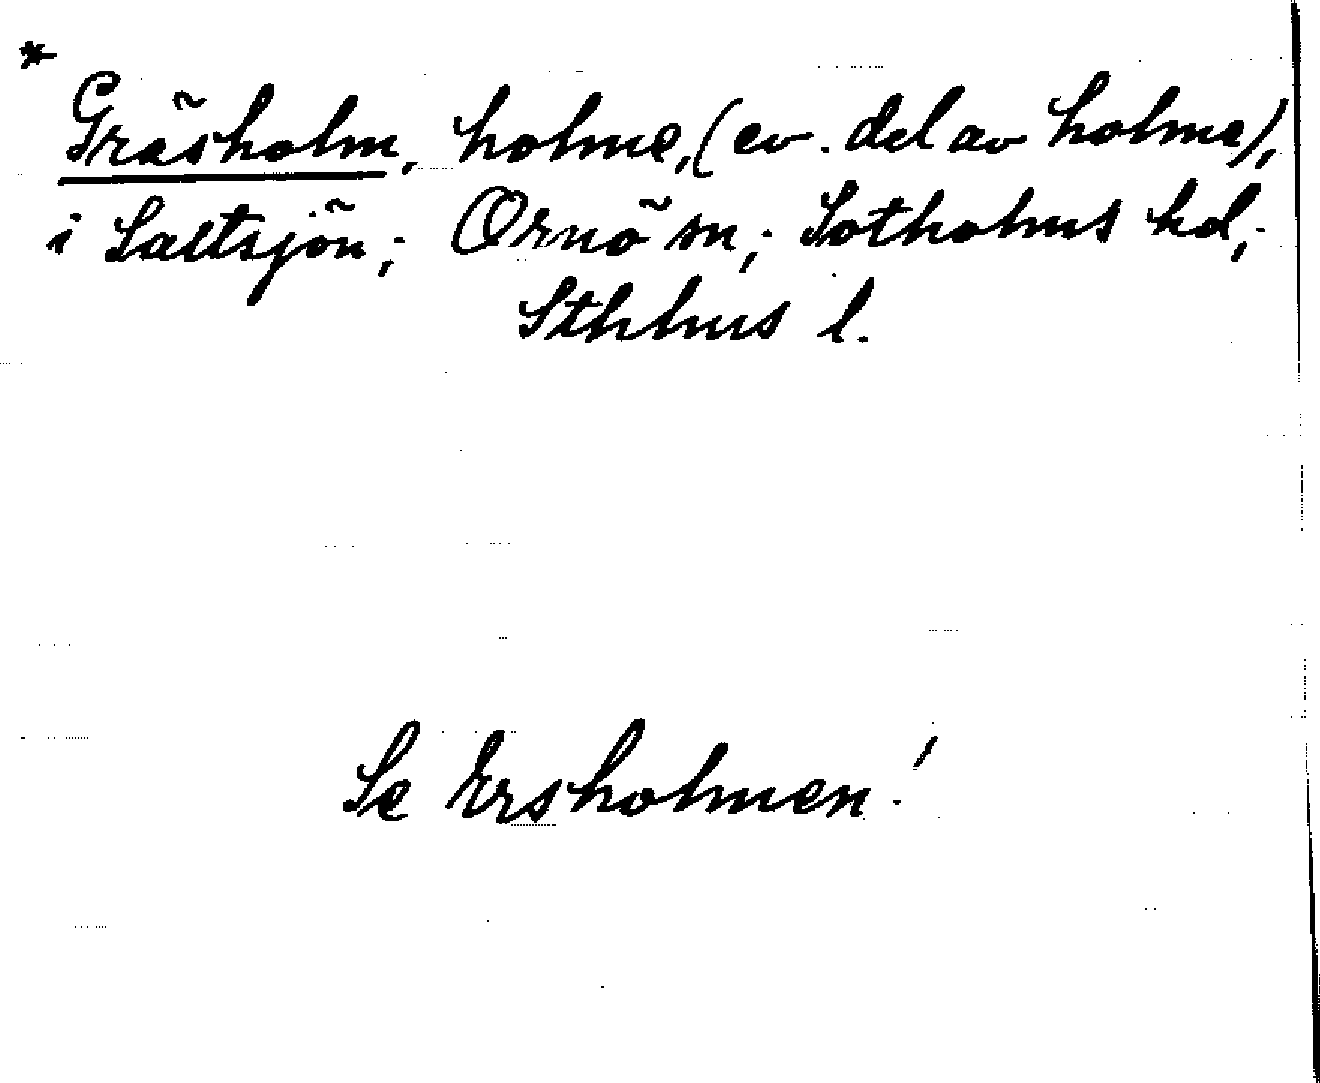 *
Gräsholm, holme, (ev. del av holme),
i Saltsjön; Ornö sn; Sotholms hd;
Sthlms l.
Se Ersholmen!